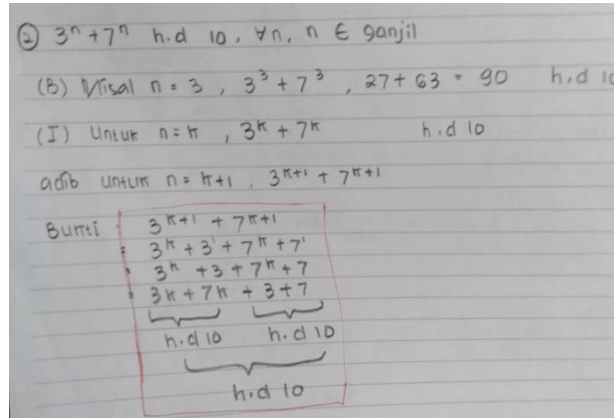 ② 3ⁿ + 7ⁿ h.d 10, ∀n, n ∈ ganjil
(B) Misal n = 3, 3³ + 7³, 27 + 63 = 90 h.d 10
(I) Untuk n = k, 3ᵏ + 7ᵏ h.d 10
adib untuk n = k+1, 3ᵏ⁺¹ + 7ᵏ⁺¹
Bukti : 3ᵏ⁺¹ + 7ᵏ⁺¹
= 3ᵏ + 3¹ + 7ᵏ + 7¹
= 3ᵏ + 3 + 7ᵏ + 7
= 3k + 7k + 3 + 7
h.d 10 h.d 10
h.d 10